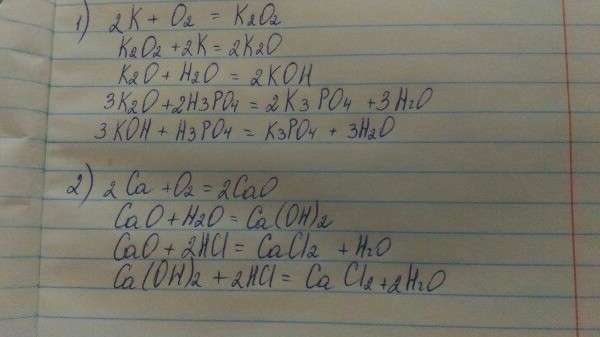 1) 2K + O2 = K2O2
K2O2 + 2K = 2K2O
K2O + H2O = 2KOH
3K2O + 2H3PO4 = 2K3PO4 + 3H2O
3KOH + H3PO4 = K3PO4 + 3H2O
2) 2Ca + O2 = 2CaO
CaO + H2O = Ca(OH)2
CaO + 2HCl = CaCl2 + H2O
Ca(OH)2 + 2HCl = CaCl2 + 2H2O